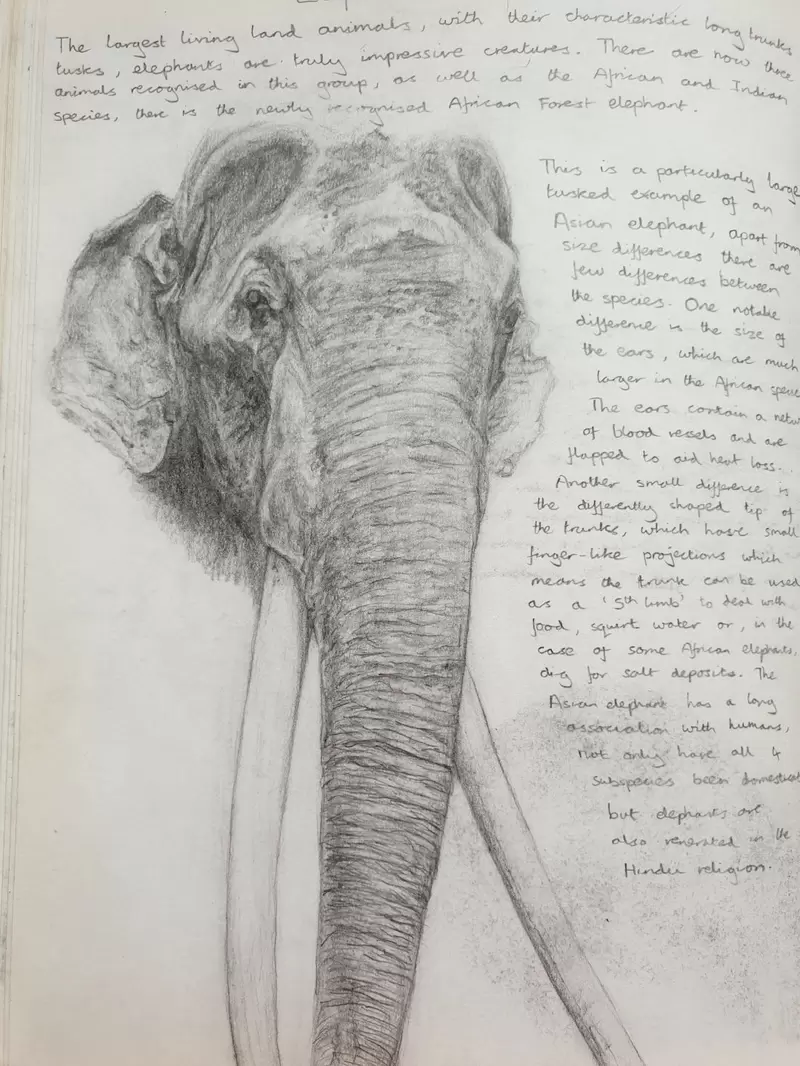 The largest living land animals, with their characteristic long trunks
tusks, elephants are truly impressive creatures. There are now three
animals recognised in this group, as well as the African and Indian
species, there is the newly recognised African Forest elephant.
This is a particularly large
tusked example of an
Asian elephant, apart from
size differences there are
few differences between
the species. One notable
difference is the size of
the ears, which are much
larger in the African
The ears contain a
of blood vessels and are
flapped to aid heat loss.
Another small difference is
the differently shaped tip of
the trunks, which have small
finger-like projections which
means the trunk can be used
as a '5th limb' to deal with
food, squirt water or, in the
case of some African elephants,
dig for salt deposits. The
Asian elephant has a long
association with humans,
not only have all 4
subspecies been
but elephants are
also in the
religion.